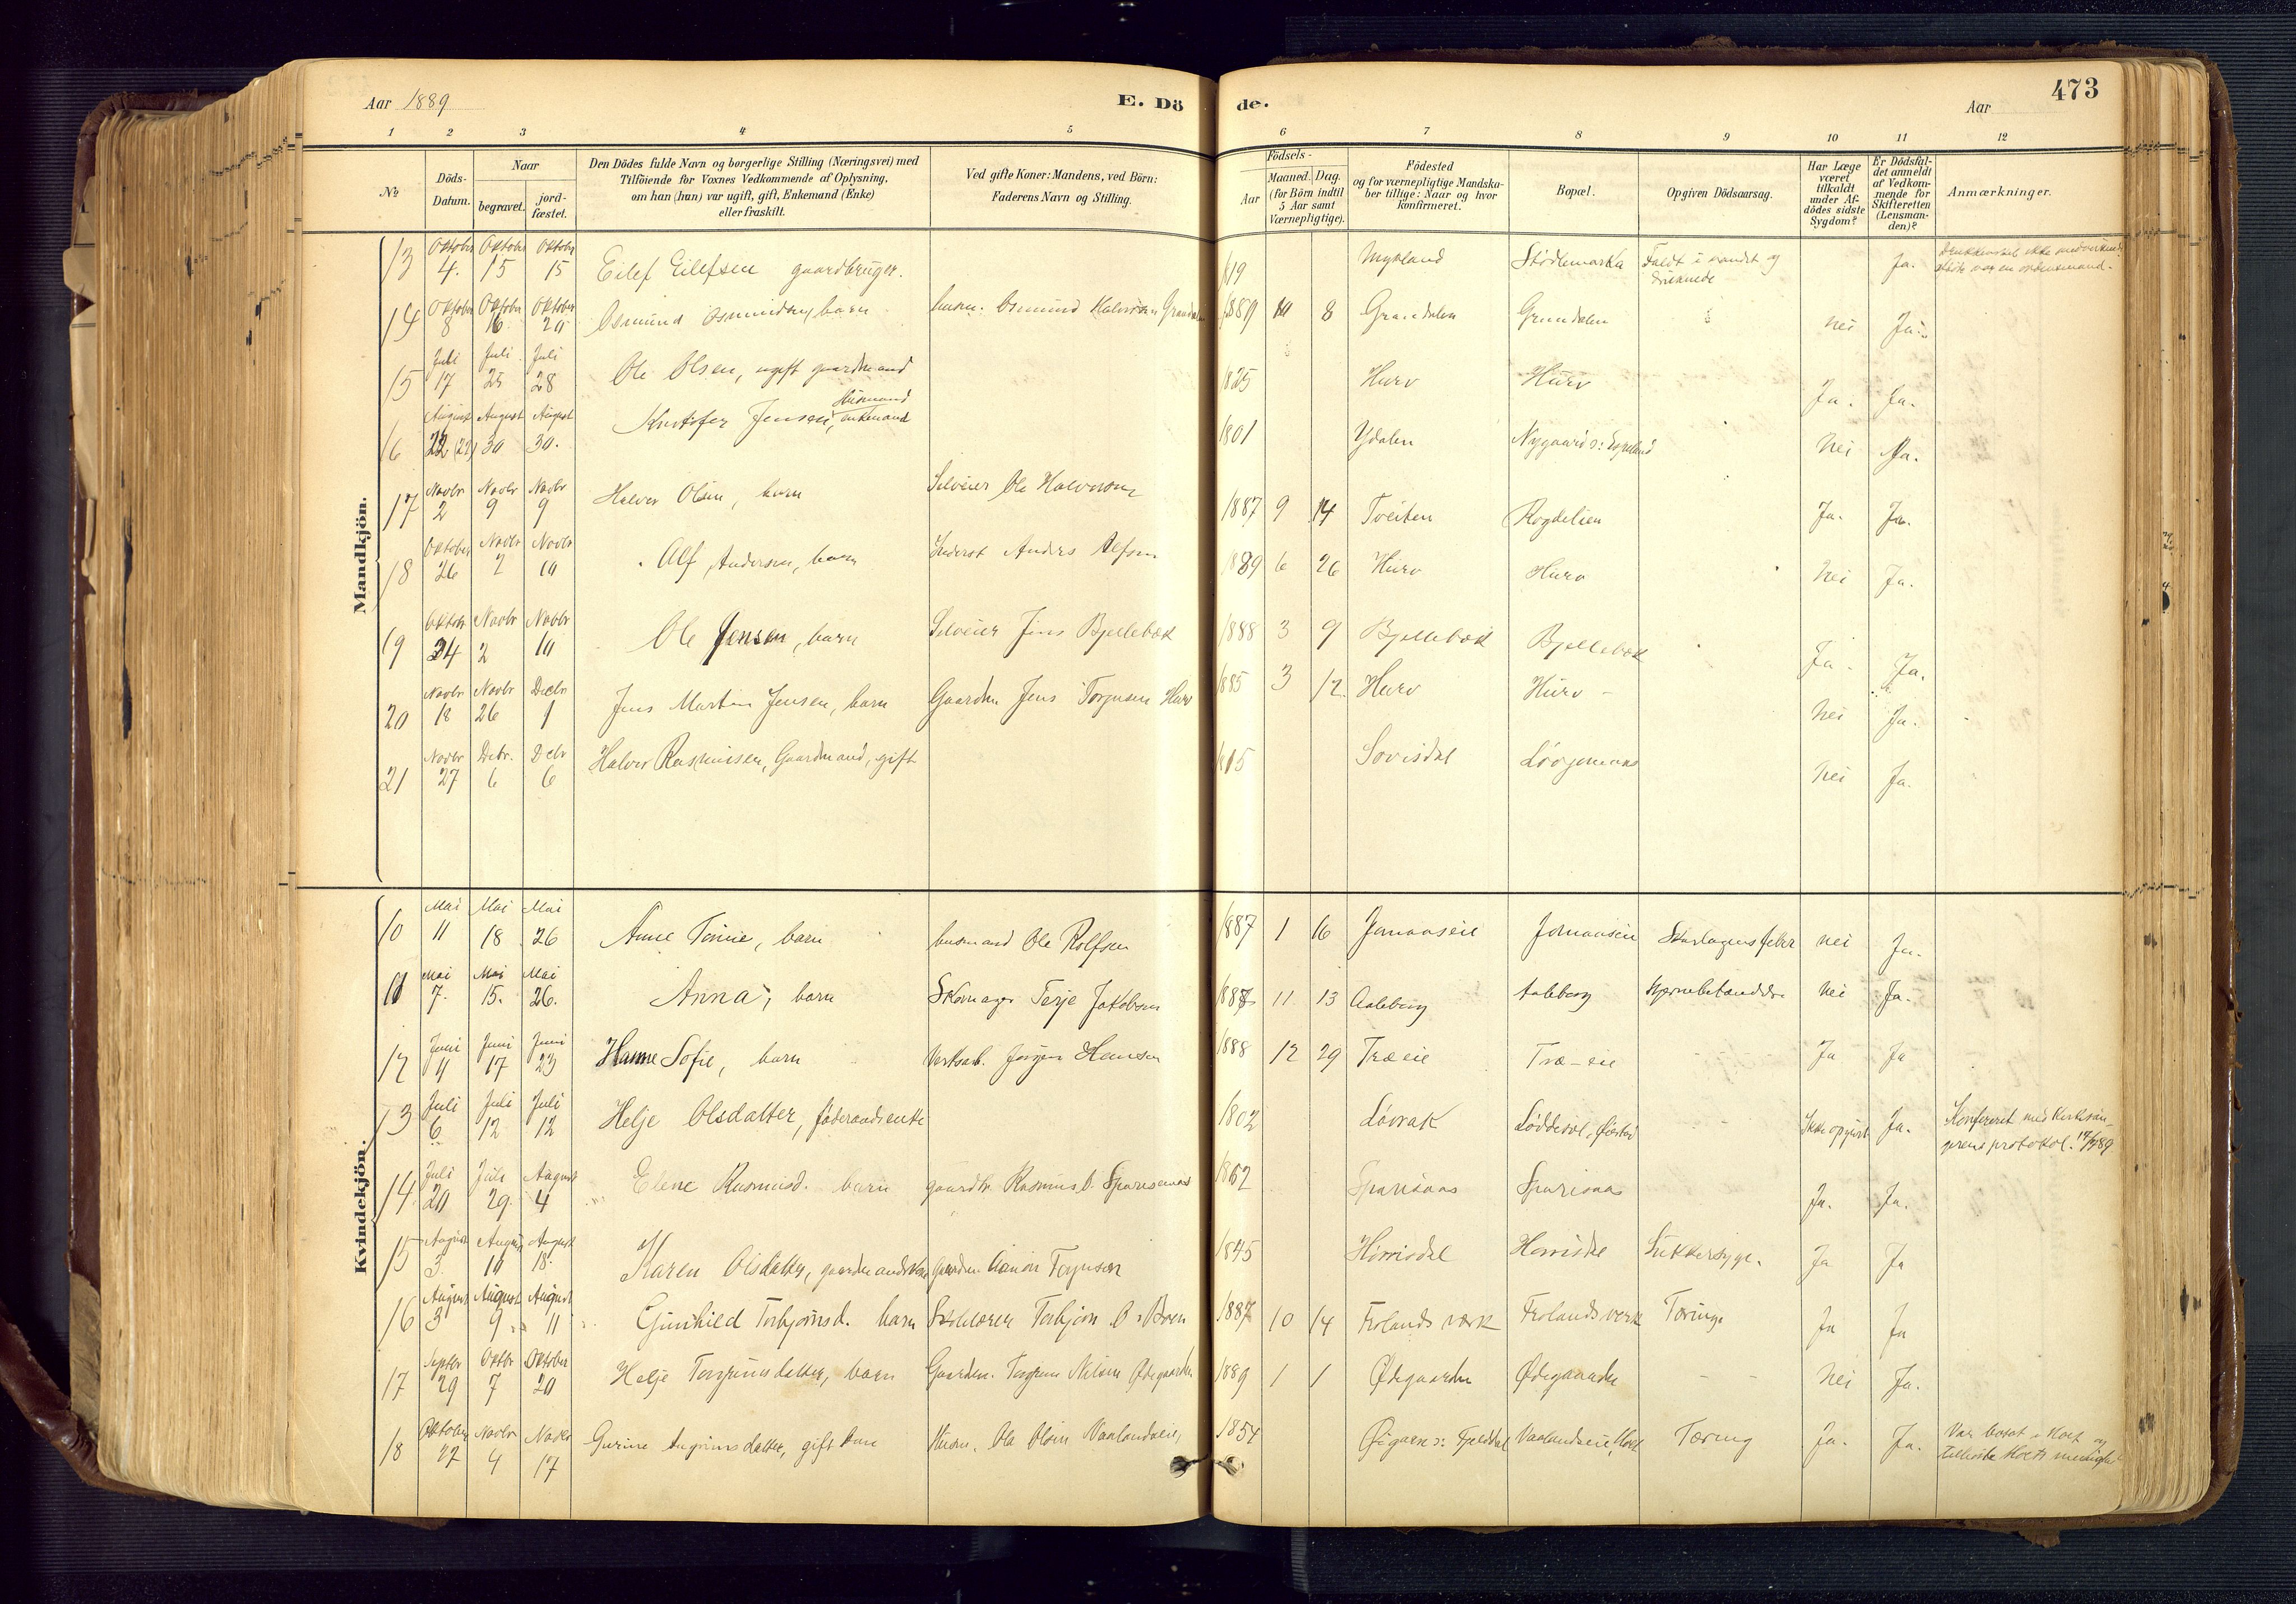 473
Aar 1889
E. Dö
de.
Aar
1 2 3 4 5 6 7 8 9 10 11 12
№
Döds-Datum.
Naar
begravet.
jord-fæstet.
Den Dödes fulde Navn og borgerlige Stilling (Næringsvei) med
Tilföiende for Voxnes Vedkommende af Oplysning,
om han (hun) var ugift, gift, Enkemand (Enke)
eller fraskilt.
Ved gifte Koner: Mandens, ved Börn:
Faderens Navn og Stilling.
Födsels-
Aar
Maaned. Dag.
(for Börn indtil
5 Aar samt
Værnepligtige).
Födested
og for værnepligtige Mandska-
ber tillige: Naar og hvor
konfirmeret.
Bopæl.
Opgiven Dödsaarsag.
Har Læge
været
tilkaldt
under Af-
dödes sidste
Sygdom?
Er Dödsfal-
det anmeldt
af Vedkom-
mende for
Skifteretten
(Lensman-
den)?
Anmærkninger.
Mandkjön.
13 Oktober 4. Oktober 15 Oktober 15 Eilef Eilefsen gaardbruger. 1819 Mykland Stødlemarka Faldt i vandet og druknede Ja.
14 Oktober 8 Oktober 16 Oktober 20 Osmund Osmundsen, barn husm. Osmund Halvorsen 1889 10 8 Grundalen nei Ja.
15 Juli 17 Juli 25 Juli 28 Ole Olsen, ugift gaardmand 1825 Hurv Hurv Ja. Ja.
16 August 22 (22) August 30 August 30. Kristofer Jensen, Husmand enkemand 1801 Ydalen Nygaard o: Espeland Nei Ja.
17 Novbr 2 Novbr 9 Novbr 9 Halvor Olsen, barn Selveier Ole Halvorsen 1887 9 14 Tveiten Rogdelien Ja. Ja.
18 Oktober 26 Novbr 2 Novbr 10 Alf Andersen, barn Inderst Anders Alfsen 1889 6 26 Hurv Hurv Nei Ja.
19 Oktbr Novbr 2 Novbr 10 Ole Jensen, barn Selveier Jens Bjellebæk 1888 3 9 Bjellebæk Bjellebæk Ja. Ja.
20 Novbr 18 Novbr 26 Decbr 1 Jens Martin Jensen, barn Gaardm Jens Torjusen Hurv 1885 3 12. Hurv Hurv Nei Ja.
21 Novbr 27 Debr. 6 Debr 6 Halvor Rasmusen, Gaardmand, gift 1815 Sovisdal Nei Ja.
Kvindekjön.
10 Mai 11 Mai 18 Mai 26 Anne Tomie, barn husmand Ole Rolfsen 1887 1 16 Jomaaseie Jomaaseie Skarlagensfeber nei Ja.
11 Mai 7. Mai 15. Mai 26. Anna, barn Skomager Terje Jakobsen 11 13 Aaleberg Aaleberg Nei Ja.
12 Juni 11 Juni 17 Juni 23 Hanne Sofie, barn Jørgen Hansen 1888 12 29 Træeie Træ-eie Ja Ja
13 Juli 6 Juli 12 Juli 12 Helje Olsdatter, føderaadsenke 1802 Løvrak Løddesøl, Øiestad Ikke opgivet Ja. Konfereret med Kirkesan-
gerens protokol.
14. Juli 20 Juli 29. August 4 Elene Rasmusd. barn gaardbr. Rasmus O. 1862 Sparisaas Sparisaas Ja. Ja.
15 August 3. August 10 August 18. Karen Olsdatter, gaardmandskone Torjusen 1845 Hørrisdal Hørrisdal Sukkersyge. Ja Ja
16 August 3 August 9 August 11 Gunhild Torbjørnsd. barn Skolelærer Torbjørn O. Boen 10 14 Frolands værk Frolands verk Tæring Ja Ja
17 Septbr 29 Oktbr 7 Oktober 20 Helje Torgrimsdatter, barn Gaardm. Torgrim Nilsen Ødegaarden 1889 1 1 Ødegaarden Ødegaarden - - Nei Ja.
18 Oktober 27 Novbr 4 Novbr 17 Gurine gift kone Husm. Ole Olsen Vaalandseie, 1854 Vaalandseie, Høvt Tæring Ja. Ja. Var bosat i og